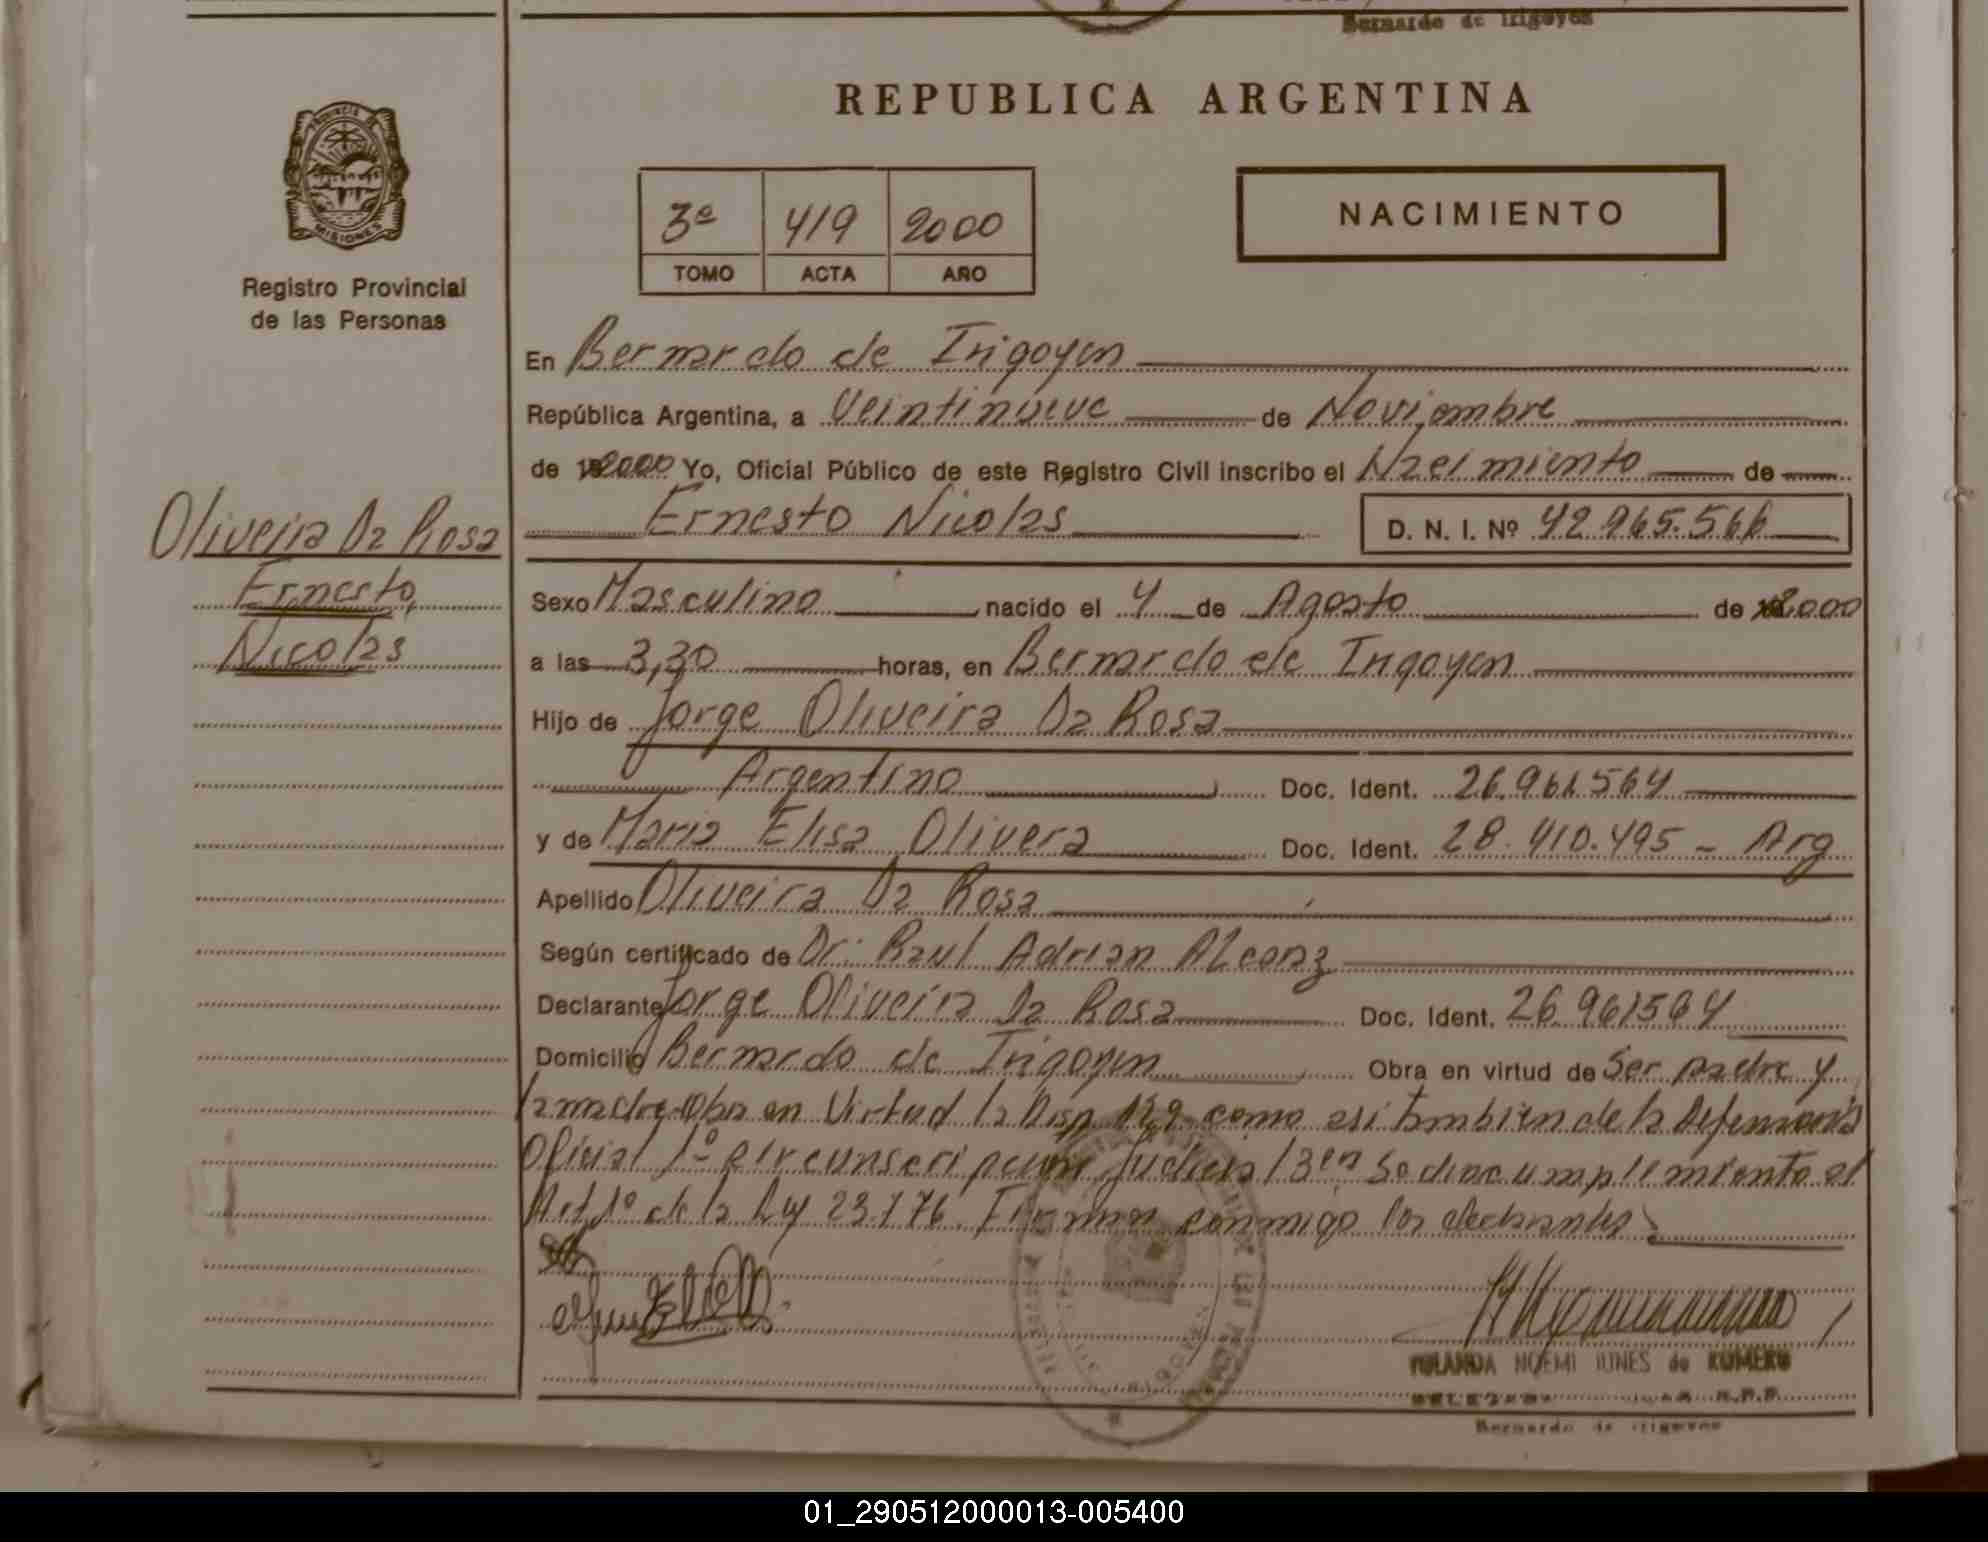 Bernardo de Irigoyen
REPUBLICA ARGENTINA
PROVINCIA DE
MISIONES
Registro Provincial
de las Personas
3ª 419 2000
TOMO ACTA AÑO
NACIMIENTO
En Bernardo de Irigoyen
República Argentina, a Veintinueve de Noviembre
de 2000 Yo, Oficial Público de este Registro Civil inscribo el Nacimiento de
Oliveira Da Rosa
Ernesto,
Nicolas
Ernesto Nicolas D. N. I. Nº 42.965.566
Sexo Masculino nacido el 4 de Agosto de 2000
a las 3,30 horas, en Bernardo de Irigoyen
Hijo de Jorge Oliveira Da Rosa
Argentino Doc. Ident. 26.961.564
y de Maria Elisa Olivera Doc. Ident. 28.410.495 - Arg
Apellido Oliveira Da Rosa
Según certificado de Dr: Raul Adrian
Declarante Jorge Oliveira Da Rosa Doc. Ident. 26961564
Domicilio Bernardo de Irigoyen Obra en virtud de Ser padre y
la madre Obra en Virtud la Disp como asi tambien de la Defensoria
Oficial 1º circunscripcion Judicial 3en Se dio cumplimiento al
Art 1º de la Ley 23.176. Firman conmigo los declarantes
YOLANDA NOEMI de
Bernardo de Irigoyen
01_290512000013-005400